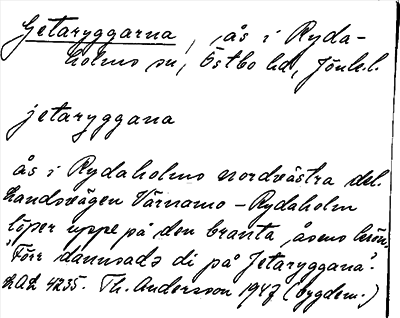 Getaryggarna, ås i Ryda-
holms sn, Östbo hd, Jönk.l.
jetaryggana
ås i Rydaholms nordvästra del.
Landsvägen Värnamo - Rydaholm
löper uppe på den branta åsens krön.
"Förr dansade di på Jetaryggana".
LAL 4235. Th. Andersson 1947 (bygdem.)